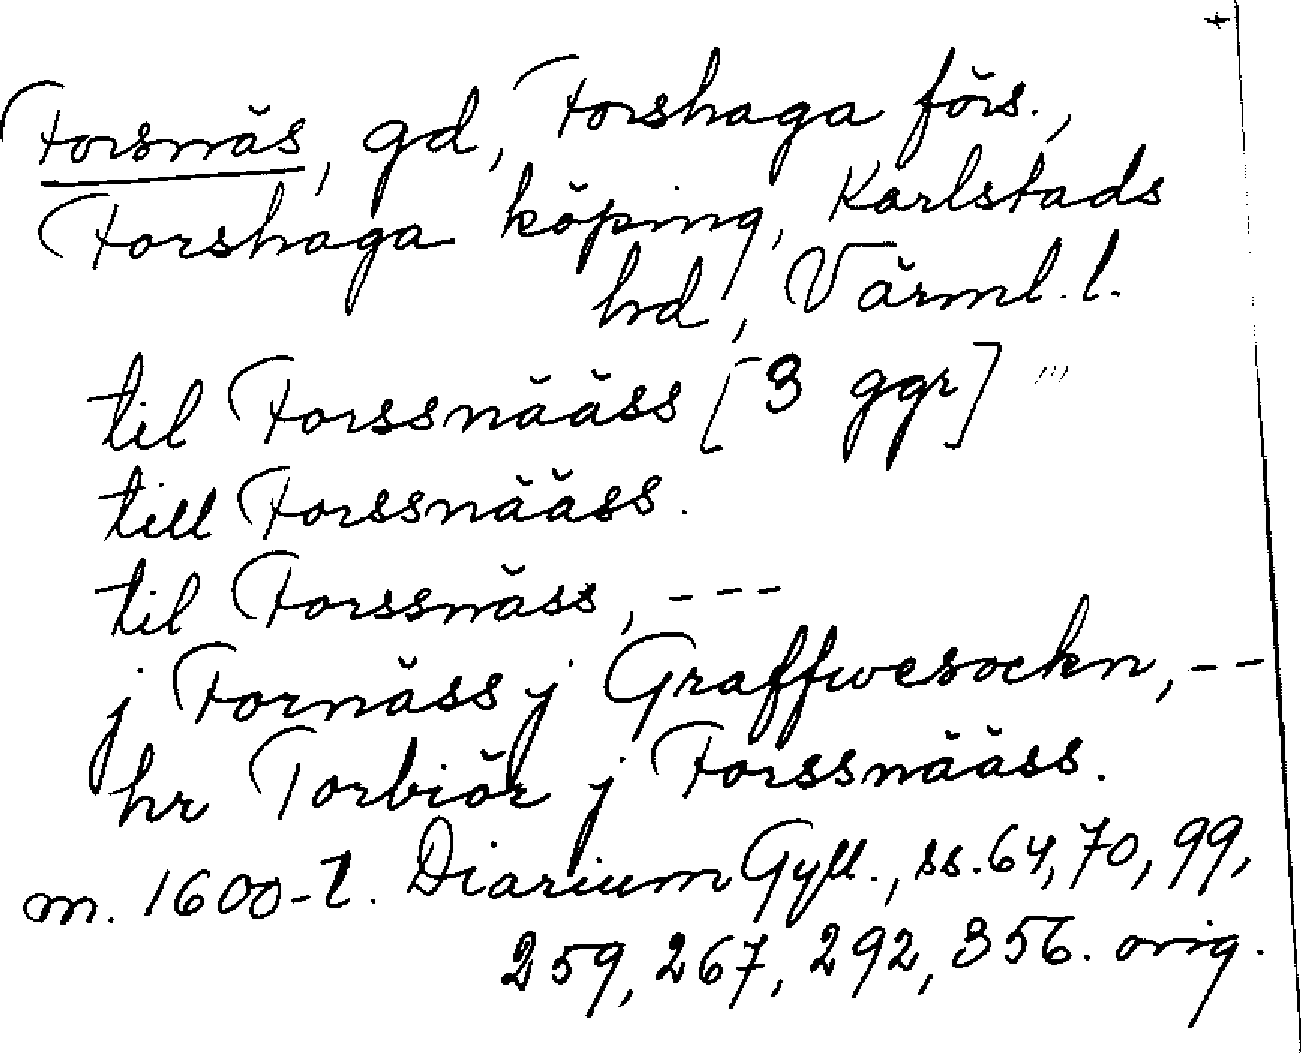 +
Forsnäs, gd, Forshaga förs.,
Forshaga köping, Karlstads
hd, Värml. l.
til Forssnääss [3 ggr]
till Forssnääss.
til Forssnäss, ---
j Fornäss j Graffwesockn, --
hr Torbiör j Forssnääss.
m. 1600-t. Diarium Gyll., ss. 64, 70, 99,
259, 267, 292, 356. orig.